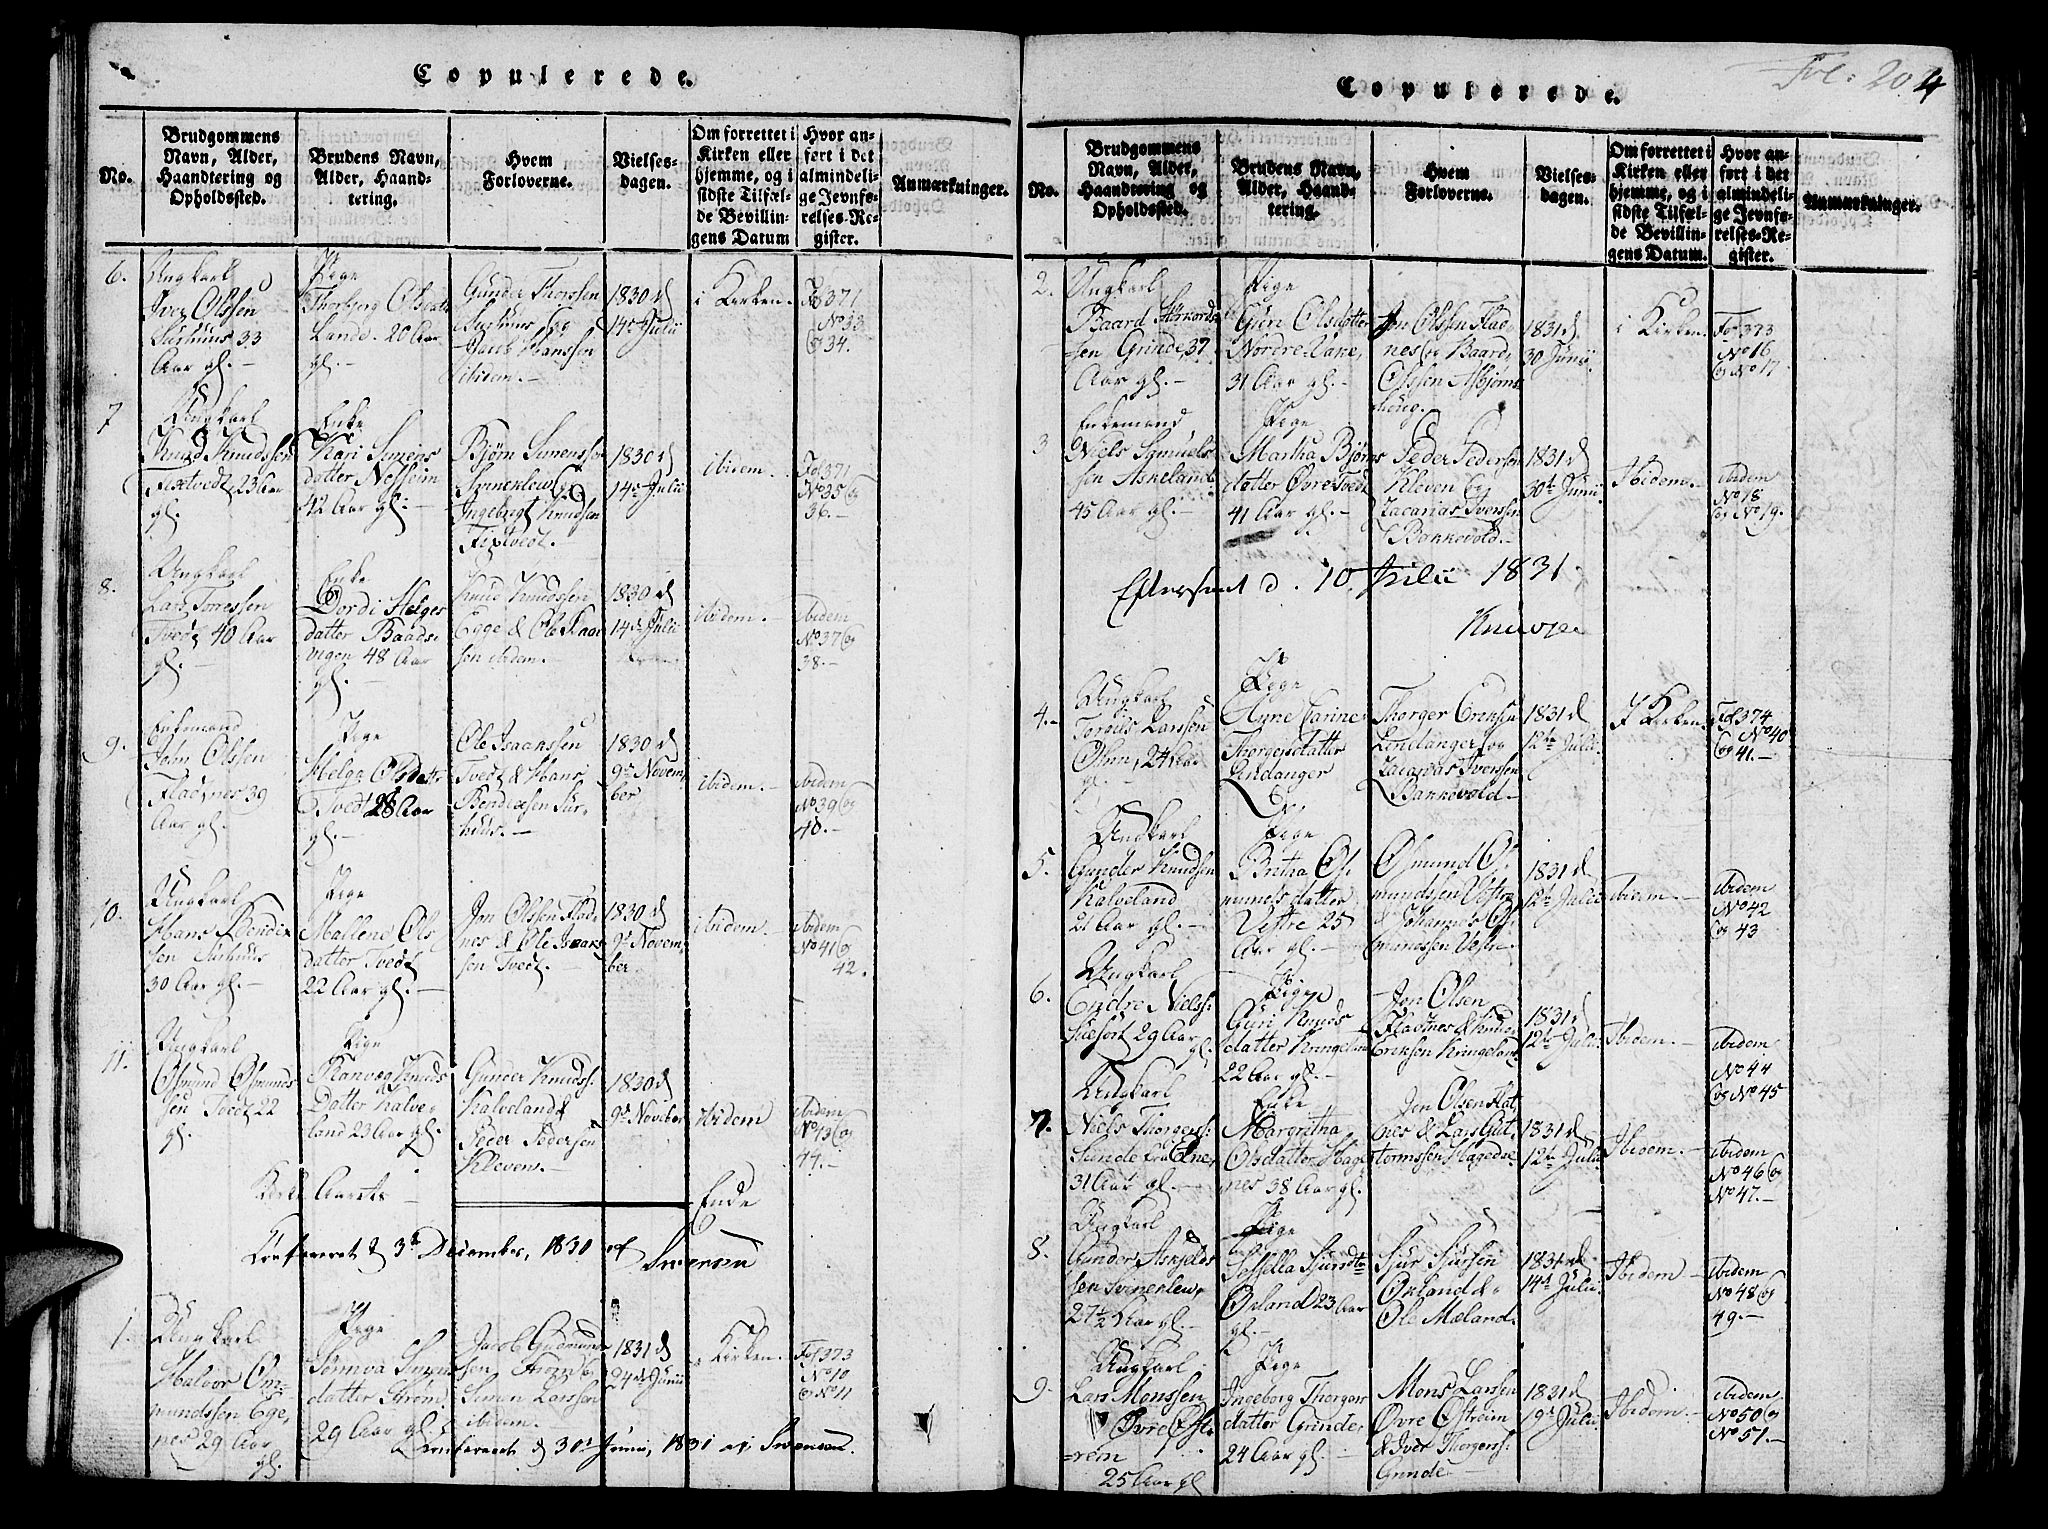 Copulerede.
No.
Brudgommens
Navn, Alder,
Haandtering og
Opholdssted.
Brudens Navn,
Alder, Haand-
tering.
Hvem
Forloverne.
Vielses-
dagen.
Om forrettet i
Kirken eller
hjemme, og i
sidste Tilfæl-
de Bevillin-
gens Datum
Hvor an-
ført i det
almindeli-
ge Jevnfø-
relses-Re-
gister.
Anmærkninger.
6.
Ungkarl
Iver Olssen
33
Aar gl. -
Pige
Thorbjørg Olsdatter
Landd. 20 Aar
gl. -
Gunder Thorssen
og
Jacob Hanssen
ibidem. -
1830 d
14de Julii
i Kirken.
Fol 371
No 33
og 34.
7
Ungkarl
Knud Knudssen
Fixtvedt 23 Aar
gl. -
Enke
Kari Simens
datter Nesheim
42 Aar gl. -
Bjørn Simenssen
Svineklew og
Ingebrigt Knudsen
Fixtvedt. -
1830 d
14de Julii
ibidem.
Fol 371
No 35 og
36. -
8.
Ungkarl
Lars Torressen
Tvedt 40 Aar
gl. -
Enke
Dordi Helges
datter Baads-
vigen 48 Aar
gl. -
Knud Knudssen
Egge & Ole Isaac
sen ibidem. -
1830 d
14de Julii
ibidem. -
ibidem
No 37 og
38. -
9.
Enkemand
John Olssen
Fladnes 39
Aar gl. -
Pige
Helga Olsdatter
Tvedt 28 Aar
gl. -
Ole Isaakssen
Tvedt & Hans
Bendixsen Sør-
huus. -
1830 d
9de Novem-
ber
ibidem. -
ibidem
No 39 og
40. -
10.
Ungkarl
Hans Bendix
sen Sørhuus
30 Aar gl. -
Pige
Mallene Ols
datter Tvedt
22 Aar gl. -
Jon Olssen Flad-
nes & Ole Isaak-
sen Tvedt. -
1830 d
9de Novem-
ber
ibidem. -
ibidem
No 41 og
42.
11.
Ungkarl
Osmund Osmunds
sen Tvedt 22
gl. -
Pige
Ranvæg Knuds
Datter Kalve-
land 23 Aar gl. -
Gunder Knudss.
Kalveland &
Peder Pedersen
Kleven. -
1830 d
9de Novber
ibidem
ibidem
No 43 og
44. -
Kirke Aarets
Ende
Confereret d 3de December, 1830 af Swensen
1.
Ungkarl
Halvor Om-
mundssen Ege-
nes 29 Aar
gl.
Pige
Sønnva Simens
datter Strøm
29 Aar gl.
Jacob Gudmund
sen, Strøm &
Simen Larssen
ibidem.
1831 d
24de Junii
i Kirken.
Fol 373
No 10
og N 11
Confereret d 30te Junii, 1831 af Swensen.
Copulerede.
Fol: 204
No.
Brudgommens
Navn, Alder,
Haandtering og
Opholdssted.
Brudens Navn,
Alder, Haand-
tering.
Hvem
Forloverne.
Vielses-
dagen.
Om forrettet i
Kirken eller
hjemme, og i
sidste Tilfæl-
de Bevillin-
gens Datum.
Hvor an-
ført i det
almindeli-
ge Jevnfø-
relses-Re-
gister.
Anmærkninger.
2.
Ungkarl
Baard
sen Grinde, 37
Aar gl. -
Pige
Guri Olsdatter
Nordre-Vane,
31 Aar gl. -
Jon Olssen Flad-
nes og Baard
Olssen Asbjørns
houg.
1831 d
30 Junii.
i Kirken.
Fol 373
No 16
og No 17.
3
Enkemand
Niels Samuels
sen Askeland
45 Aar gl. -
Pige
Martha Bjørns
datter Øvre Tvedt
41 Aar gl. -
Peder Pedersen
Kleven og
Zacarias Iverssen
Bakkevold. -
1831 d
30te Junii.
Ibidem. -
ibidem
No 18
og No 19.
Efterseet d. 10. Julii 1831.
4. -
Ungkarl
Torgils Larsen
24 Aar
gl.
Pige
Anne Carine
Thorgersdatter
Lindanger
Thorger Eriksen
Lindanger og
Zacarias Iverssen
Bakkevold -
1831 d
12te Julii.
I Kirken.
Fol 374
No 40
og 41. -
5.
Ungkarl
Gunder Knudsen
Kalveland
21 Aar gl. -
Pige
Britha Os-
munds datter
Vestre 25
Aar gl. -
Osmund Os-
mundssen Vestre
& Johannes Os-
mundssen Vestre
1831 d
12te Julii
ibidem. -
ibidem
No 42
og 43
6.
Ungkarl
Endre Nielss.
29 Aar
gl.
Pige
Guri Knuds
datter Kringeland
22 Aar gl. -
Jon Olsen
Fladtnes & Knud
Eriksen Kringeland
1831 d
12te Julii
Ibidem. -
ibidem
No 44
og No 45
7.
Ungkarl
Niels Thorgerss.
31 Aar gl. -
Enke
Margretha
Olsdatter Hage-
nes 38 Aar gl.
Jon Olsen Flat-
nes & Lars Gut-
tormssen
1831 d
12te Julii
Ibidem. -
ibidem
No 46 og
No 47. -
8.
Ungkarl
Gunder Askjelds
sen Svineklew,
27½ Aar gl. -
Pige
Sossella Sjursdtr
Øxland 23 Aar
gl. -
Sjur Sjursen
Øxland &
Ole Mæland.
1831 d
14de Julii.
Ibidem -
ibidem
No 48 og
49. -
9.
Ungkarl
Lars Monssen
Øvre Øst-
rem
25 Aar gl
Pige
Ingeborg Thorgers
datter Grinde,
24 Aar gl. -
Mons Larsen
Øvre Østreim
& Iver Thorgerss.
Grinde -
1831 d
19de Julii
Ibidem. -
ibidem
No 50 og
No 51. -